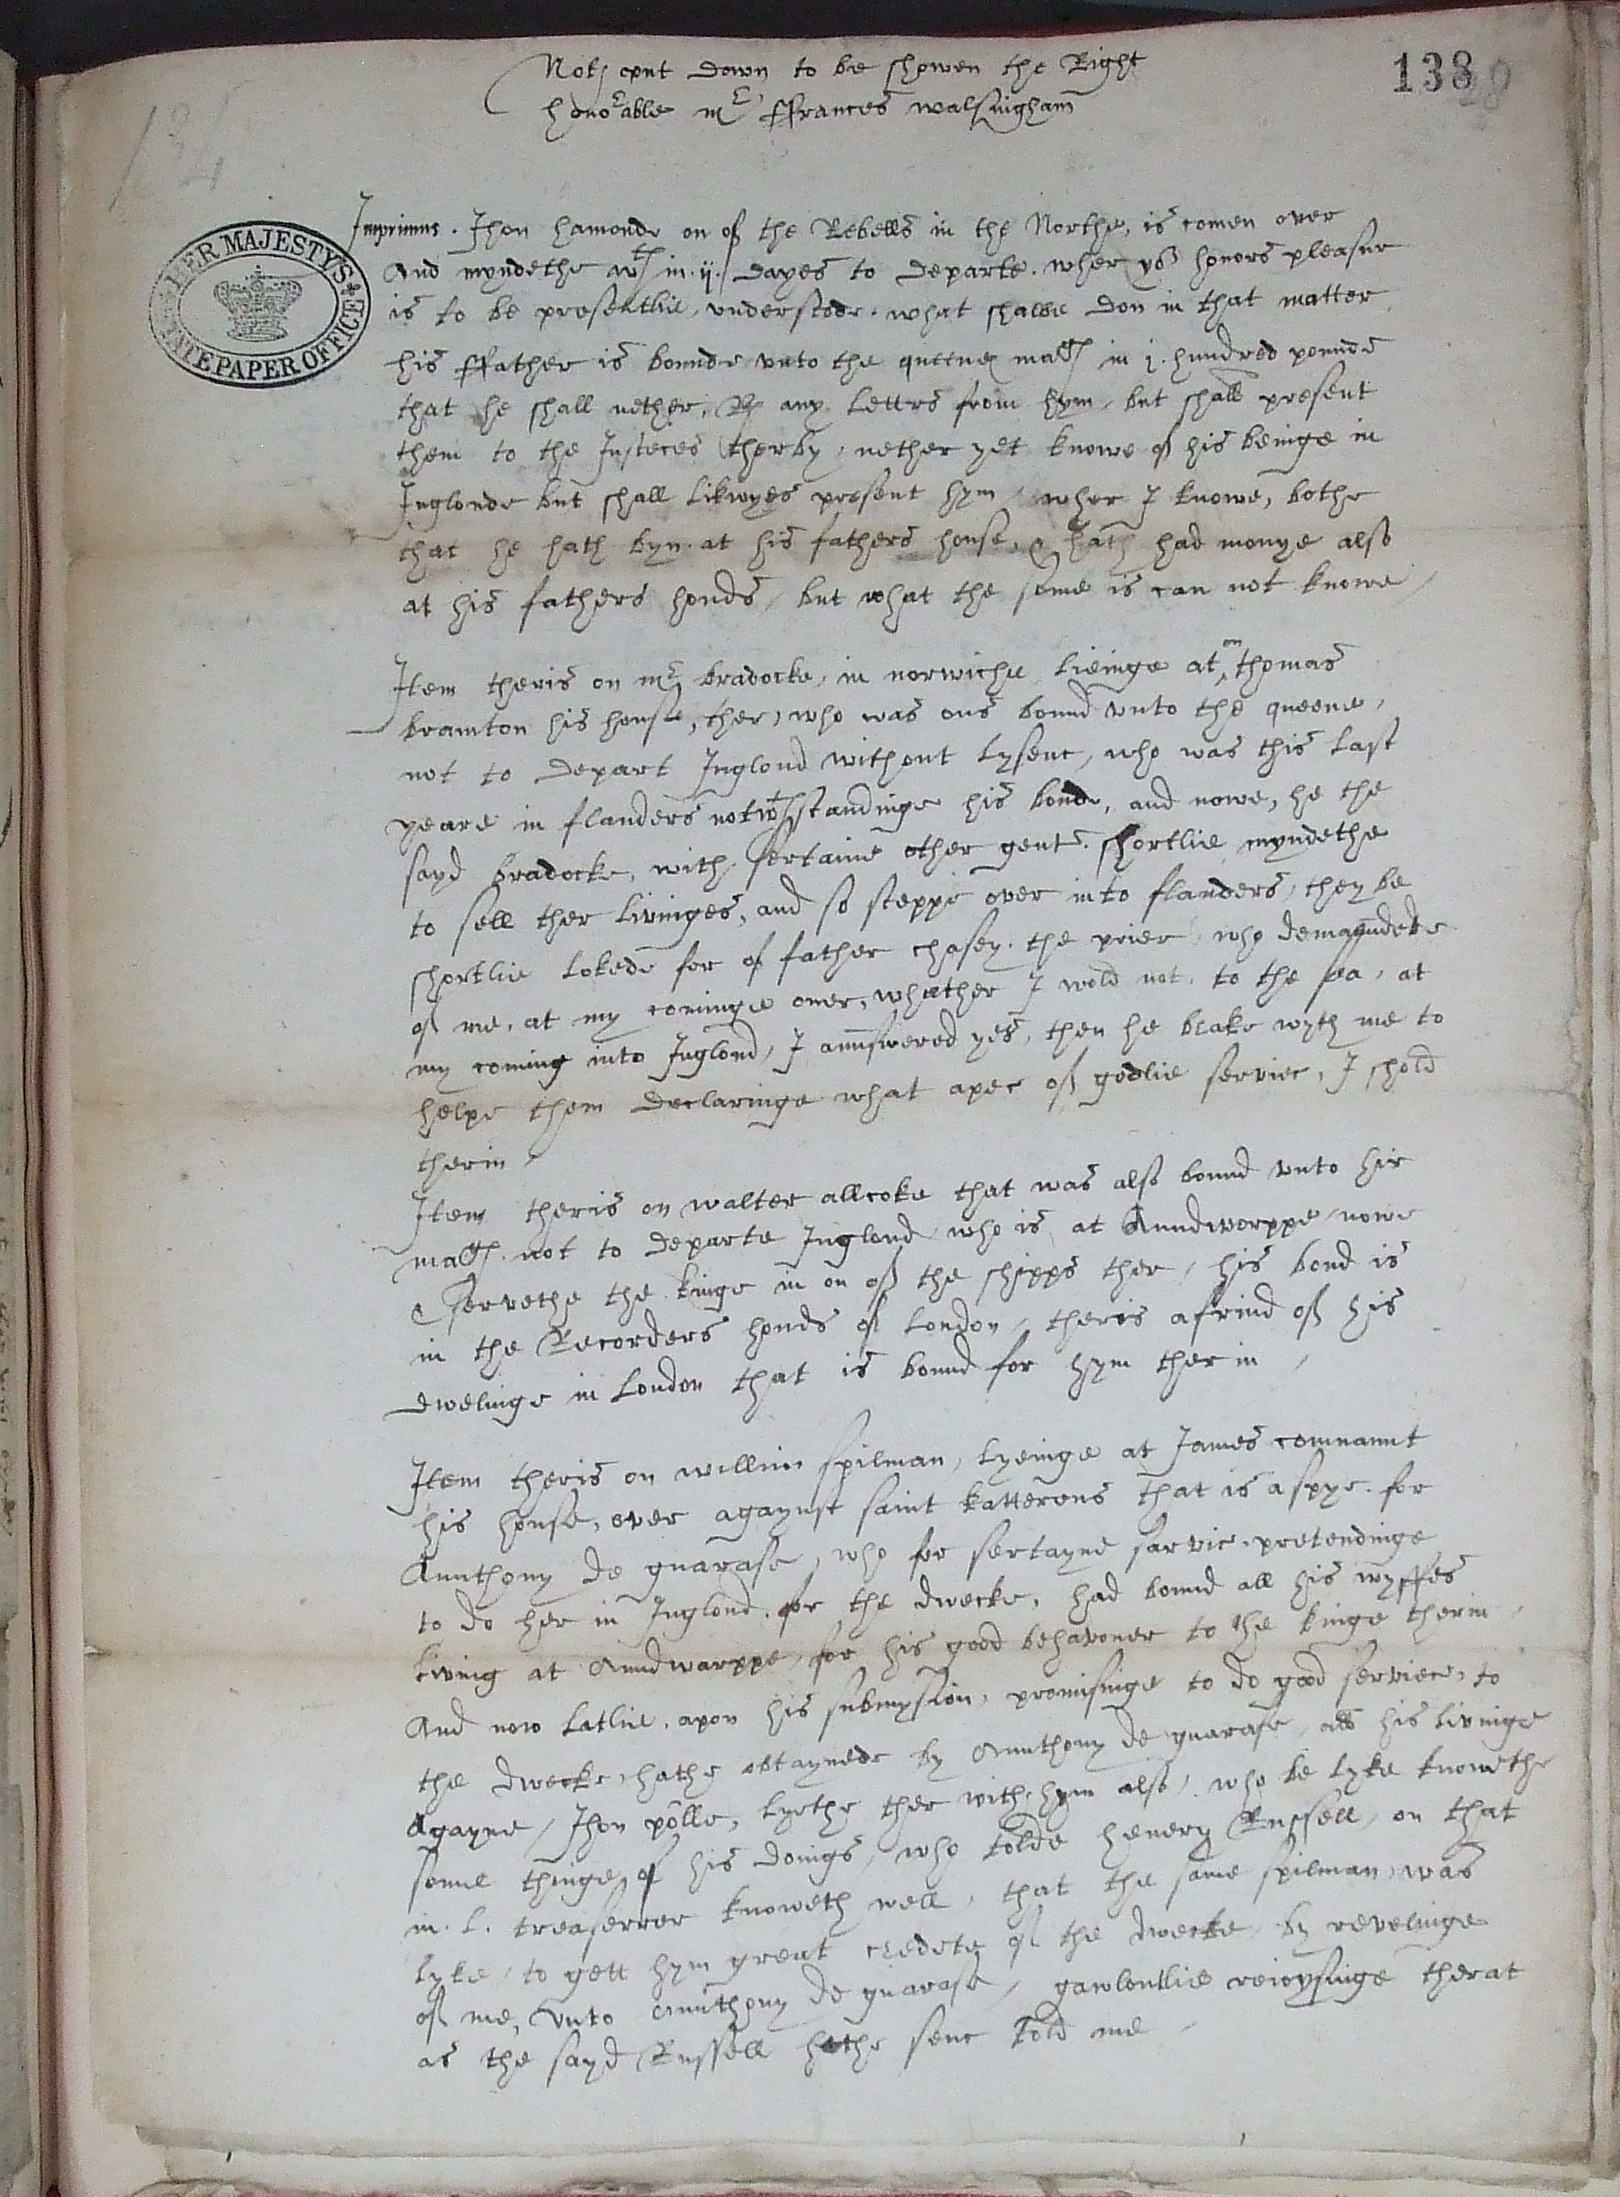 Not? cont down to be showen the Right
honorable mr ffrances walsingham
138
28
134
HER MAJESTY'S
STATE PAPER OFFICE
Imprimus . Jhon hamonde on of the Rebells in the Northe, is comen over
And myndethe wth in .ij. dayes to departe. wher yor honors pleasur
is to be presentlie, understode. what shalbe don in that matter
his ffather is bounde unto the quenes matie in j. hundred pounde
that he shall nether, any letters from hym, but shall present
them to the Justeces therby, nether yet knowe of his beinge in
Inglonde but shall likwyes present hym, wher I knowe, bothe
that he hath byn at his fathers house, & hath had monye also
at his fathers honds, but what the some is can not knowe,
Item theris on mr bradocke, in norwiche lieinge at on thomas
bramton his house, ther, who was ons bound unto the queene,
not to depart Inglond without lysenc, who was this last
yeare in flanders notwthstandinge his bonde, and nowe, he the
sayd bradocke, with sertaine other gent. shortlie myndethe
to sell ther livinges, and so steppe over into flanders, they be
shortlie lokede for of father chasey. the prier, who demaundede
of me, at my cominge over, whether I wold not, to the sea, at
my coming into Inglond, I aunswered yes, then he brake wyth me to
helpe them declaringe what apec of godlie serviec, I shold
therin,
Item theris on walter allcoke that was also bound unto hir
matie not to departe Inglond, who is at Anndworppe, nowe
& servethe the kinge in on of the shipps ther, his bond is
in the Recorders honds of London, theris afrind of his
dwelinge in London that is bound for hym ther in,
Item theris on willim spilman, lyeinge at James
his house, over agaynst saint katterens that is aspye. for
Annthony de guarase, who for sertayne sarvic, pretendinge
to do her in Inglond, for the dwecke, had bound all his wyffes
living at Anndwarppe, for his good behavoner to the kinge therin,
And now latlie, apon his submysion, promisinge to do good serviec, to
the dwecke, hathe obtaynede by Annthony de guarase, all his livinge
Agayne, Jhon polle, lyethe ther with hym also, who be lyke knowethe
some thinge of his doings, who tolde henery Russell, on that
m. l. treaserrer knoweth well, that the same spilman, was
lyke, to gett hym great credete of the dwecke, by revelinge
of me, unto Annthony de guarase, gawlentlie reioysinge therat
as the sayd Russell hathe senc told me,